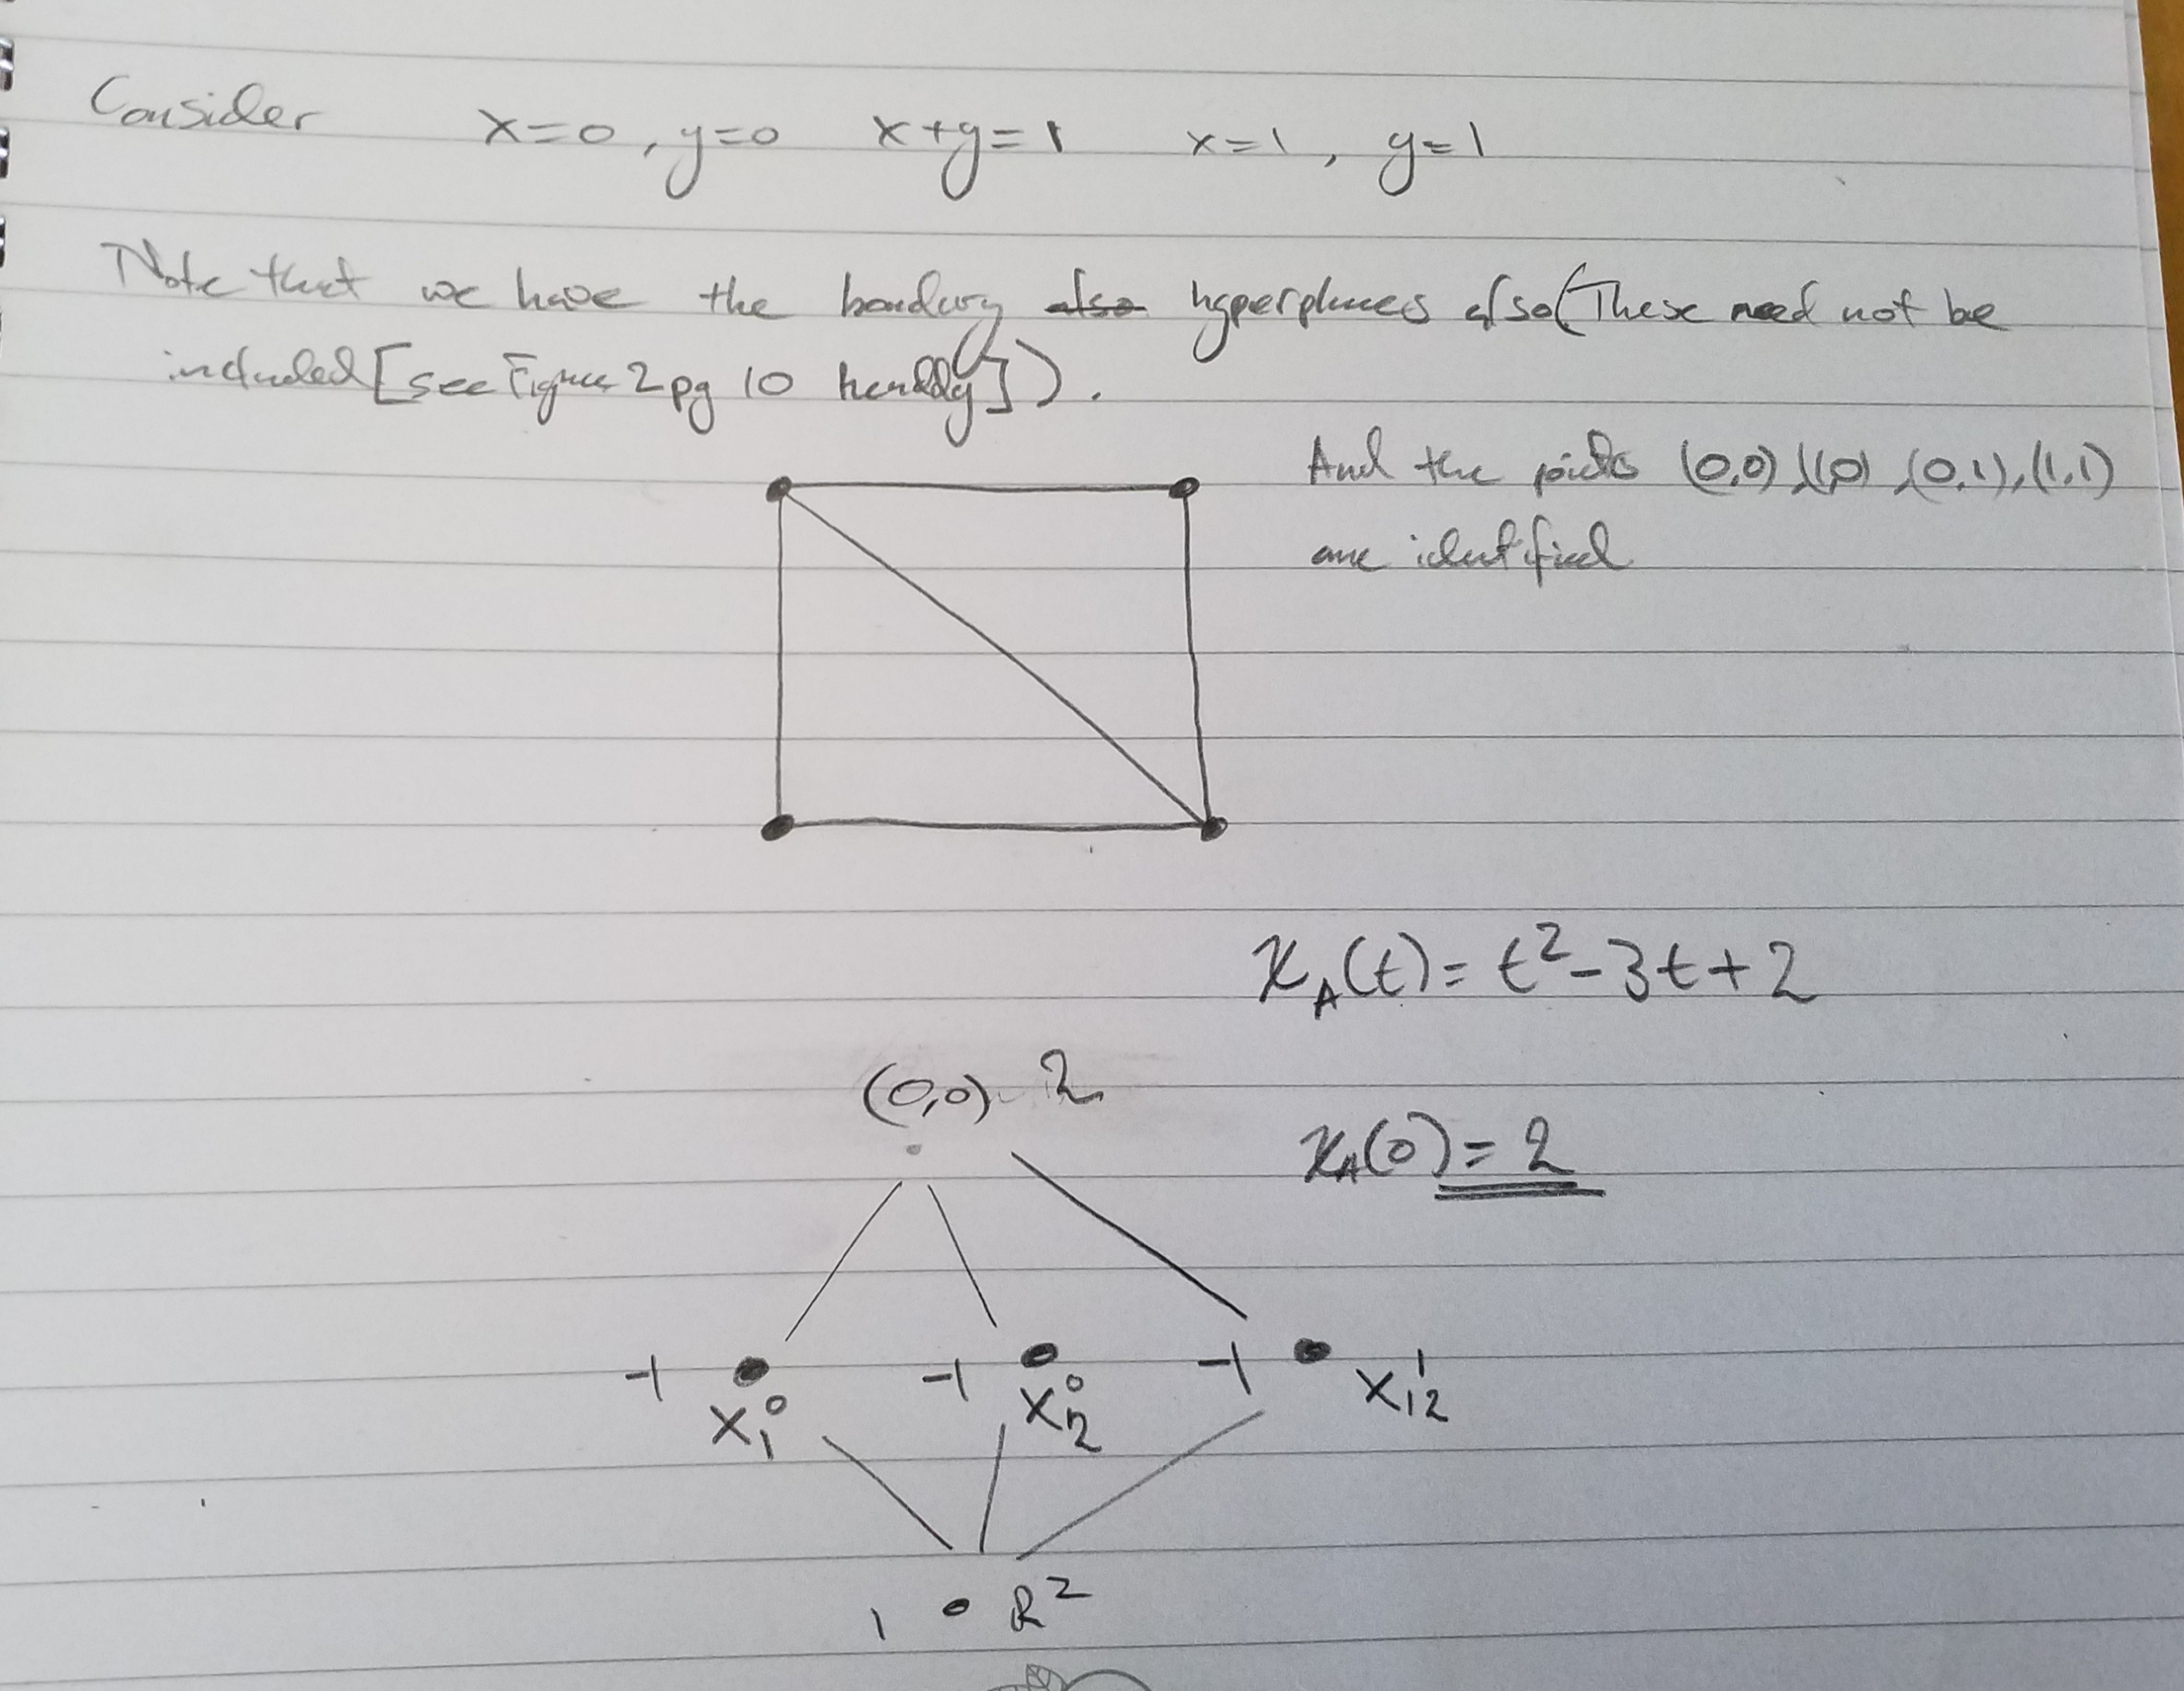 Consider x=0, y=0 x+y=1 x=1, y=1
Note that we have the boundary also hyperplanes also (These need not be
included [see Figure 2 pg 10 ]).
And the points (0,0), (1,0), (0,1), (1,1)
are identified
χ_A(t) = t² - 3t + 2
(0,0) 2
χ_A(0) = 2
-1 x₁⁰ -1 x₂⁰ -1 x₁₂¹
1 R²